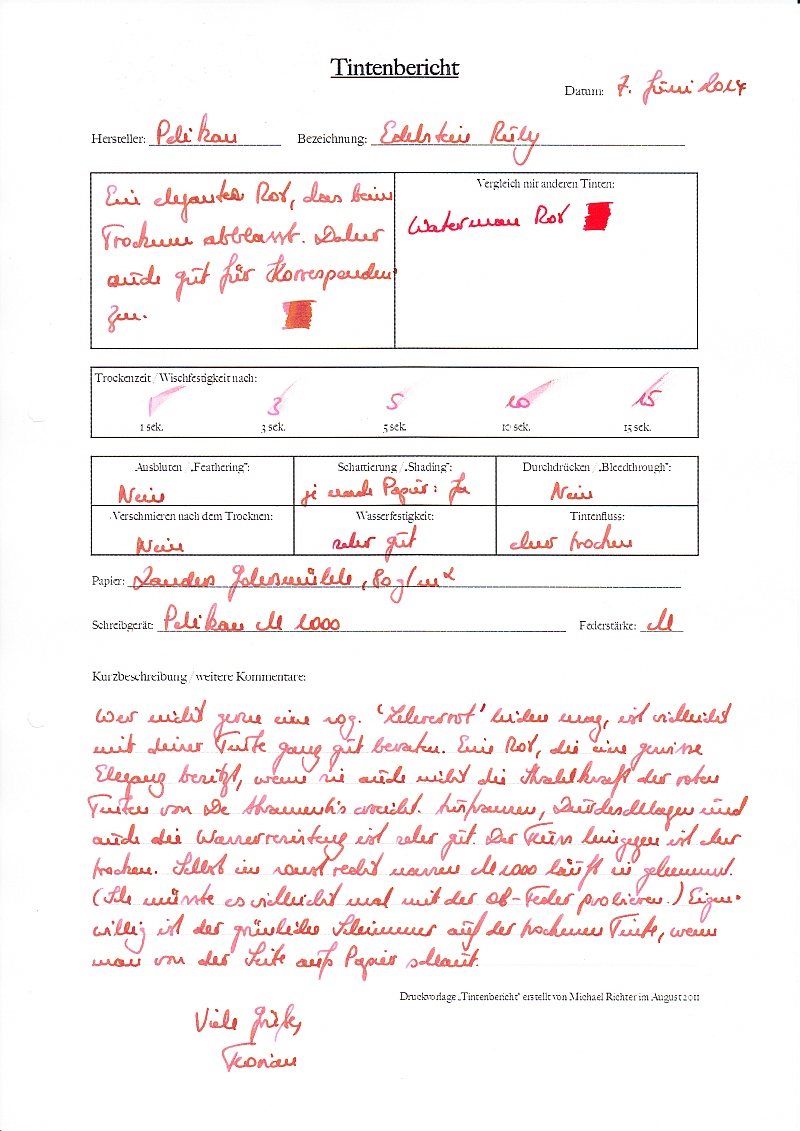 Tintenbericht
Datum: 7. Juni 2014
Hersteller: Pelikan Bezeichnung: Edelstein Ruby
Ein elegantes Rot, das beim
Trocknen abblasst. Daher
auch gut für Korresponden
zen.
Vergleich mit anderen Tinten:
Waterman Rot
Trockenzeit / Wischfestigkeit nach:
1 3 5 10 15
1 sek. 3 sek. 5 sek. 10 sek. 15 sek.
Ausbluten / „Feathering": Schattierung / „Shading": Durchdrücken / „Bleedthrough":
Nein je nach Papier: Ja Nein
Verschmieren nach dem Trocknen: Wasserfestigkeit: Tintenfluss:
Nein sehr gut eher trocken
Papier: Zanders Gohrsmühle, 80 g/m²
Schreibgerät: Pelikan M 1000 Federstärke: M
Kurzbeschreibung / weitere Kommentare:
Wer nicht gerne eine sog. 'Lehrerrot' leiden mag, ist vielleicht
mit dieser Tinte ganz gut beraten. Ein Rot, die eine gewisse
Eleganz besitzt, wenn sie auch nicht die Strahlkraft der roten
Tinten von De Atramentis erreicht. Ausfransen, Durchschlagen und
auch die Wasserresistenz ist sehr gut. Der Fluss hingegen ist eher
trocken. Selbst im sonst recht nassen M 1000 läuft sie gehemmt.
(Ich müsste es vielleicht mal mit der OB-Feder probieren.) Eigen-
willig ist der grünliche Schimmer auf der trockenen Tinte, wenn
man von der Seite aufs Papier schaut.
Druckvorlage „Tintenbericht" erstellt von Michael Richter im August 2011
Viele Grüße,